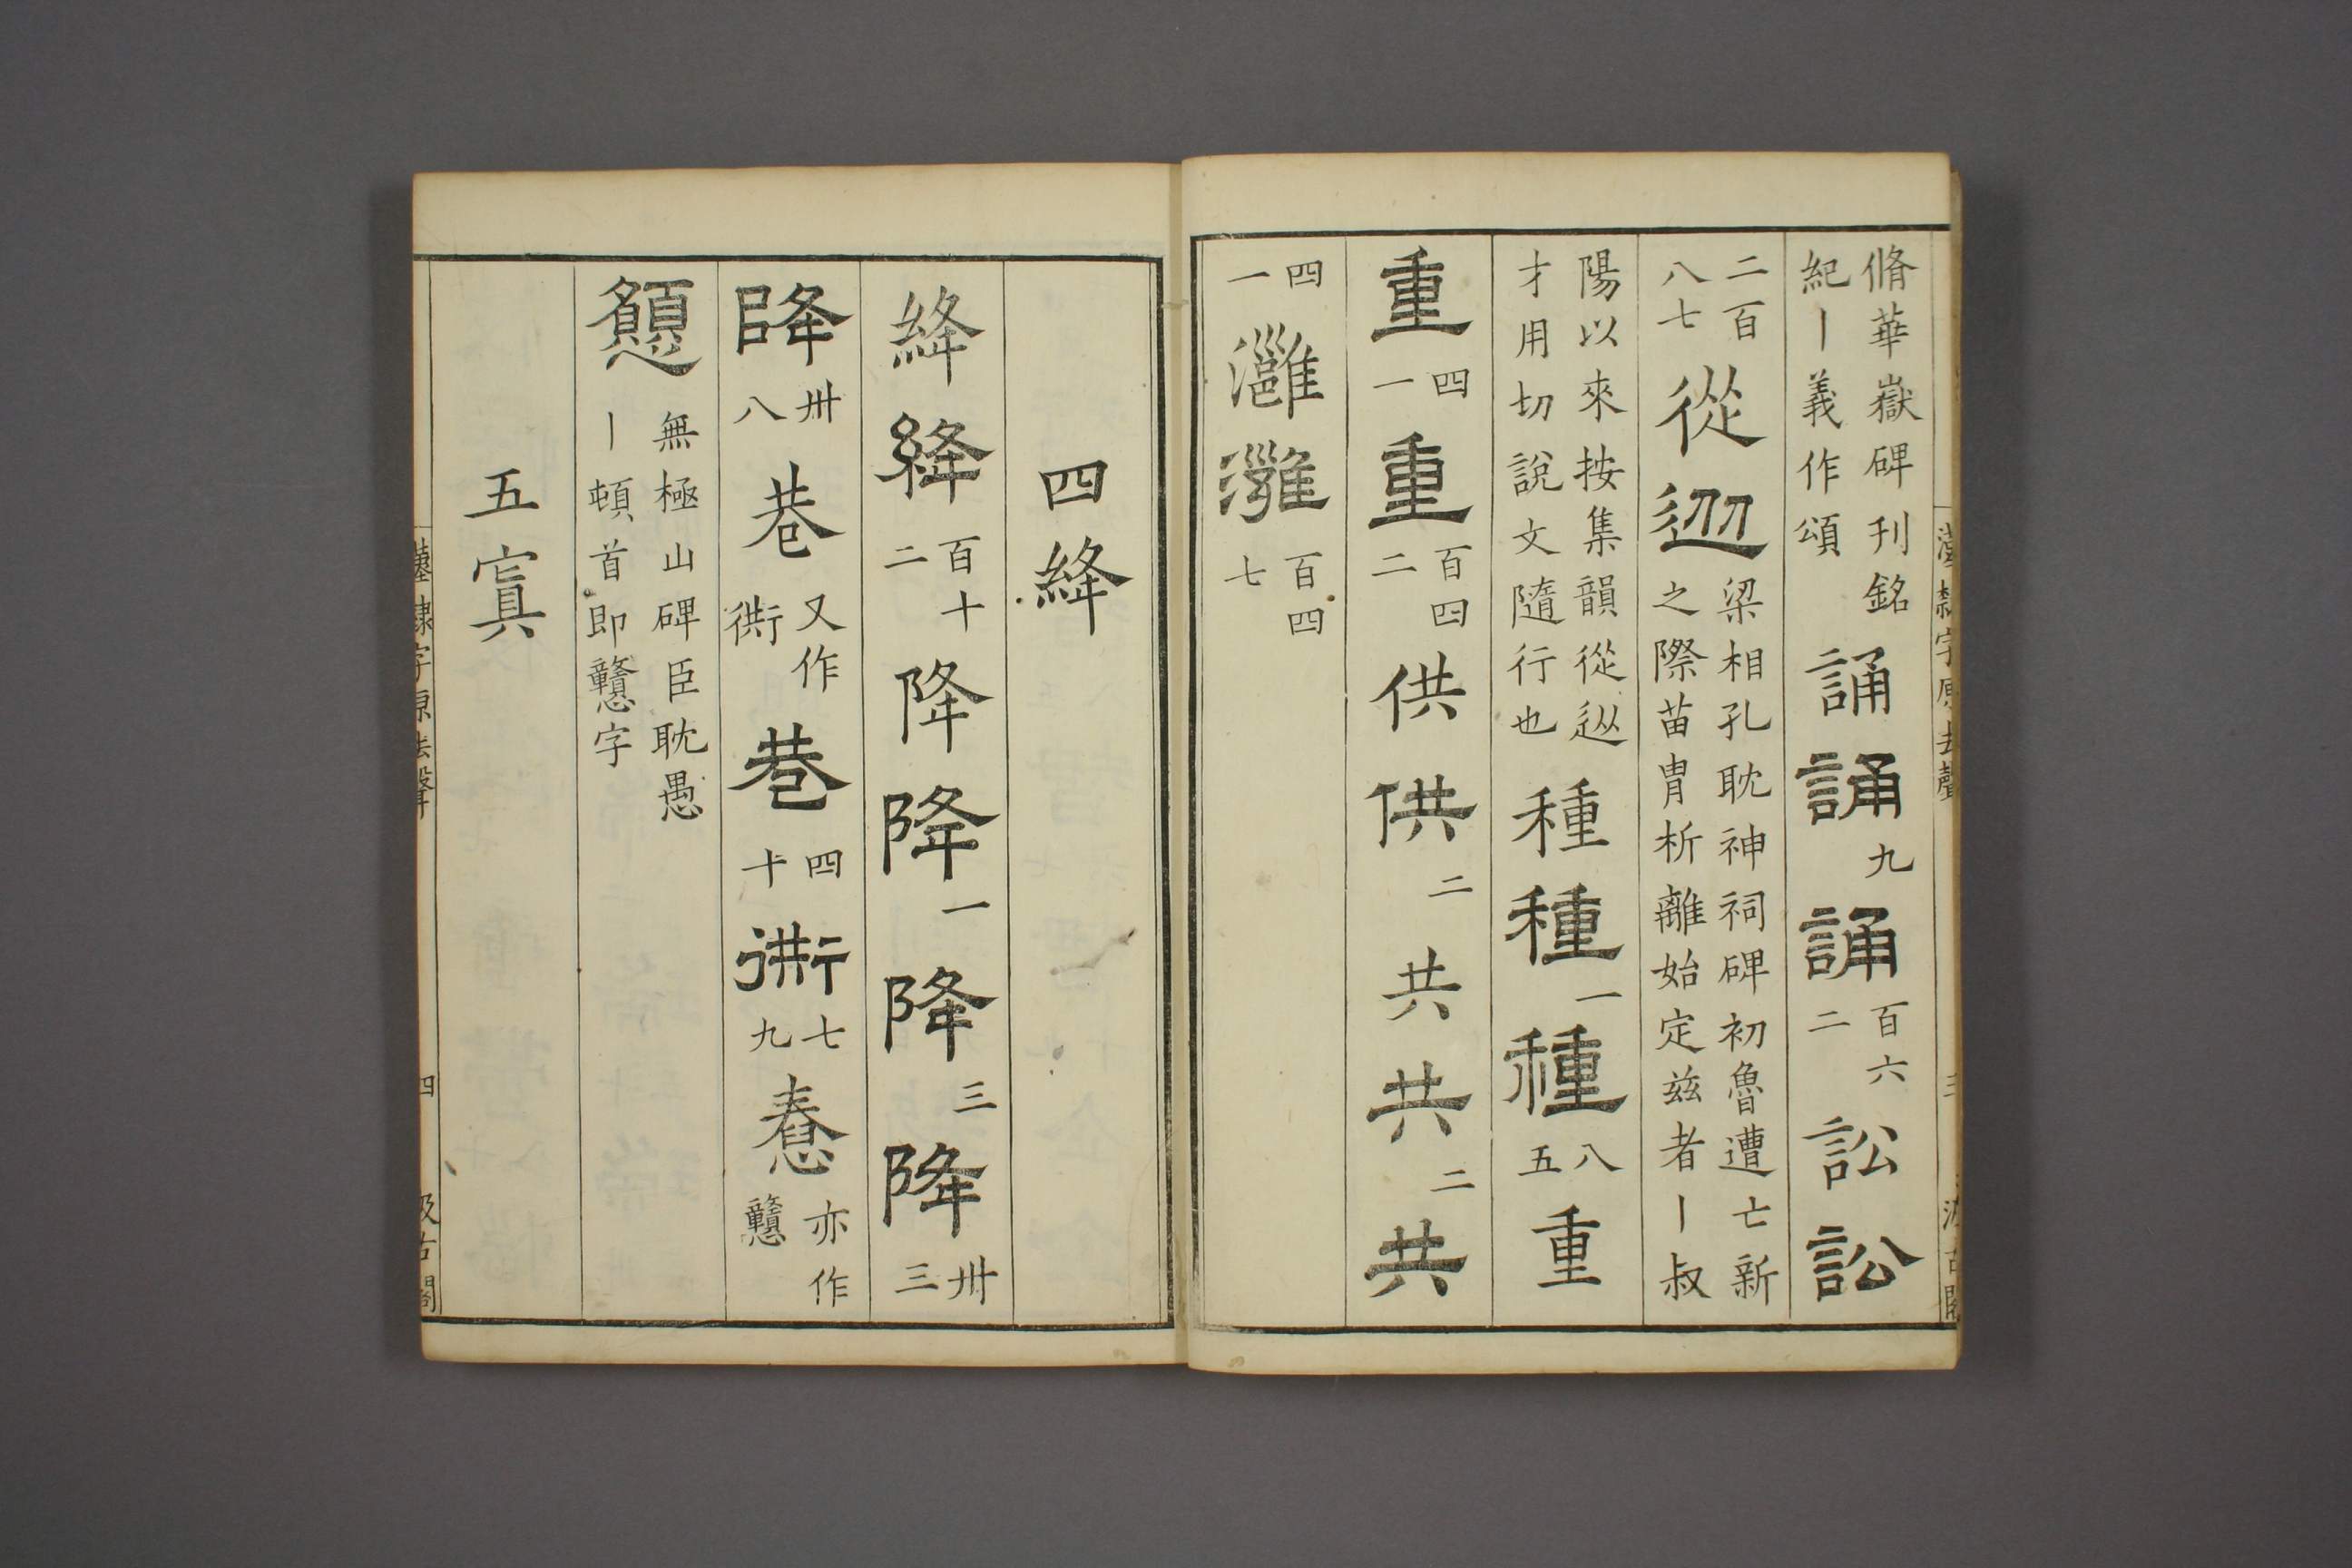 脩華嶽碑刊銘
紀丨義作頌
誦誦九誦百六二訟訟
二百
八七
從䢐
梁相孔耽神祠碑初魯遭亡新
之際苗胄析離始定兹者丨叔
陽以來按集韻從䢐
才用切說文隨行也
種種一種八五重
重四一重百四二供供二共共二共
四
一
灉灉百四七
四絳
絳絳百十二降降一降三降卅三
降卅八巷
又作
衖
巷四十衖七九惷
亦作
戇
𢥠
無極山碑臣耽愚
丨頓首即戇字
五寘
漢隸字原去聲
四
汲古閣